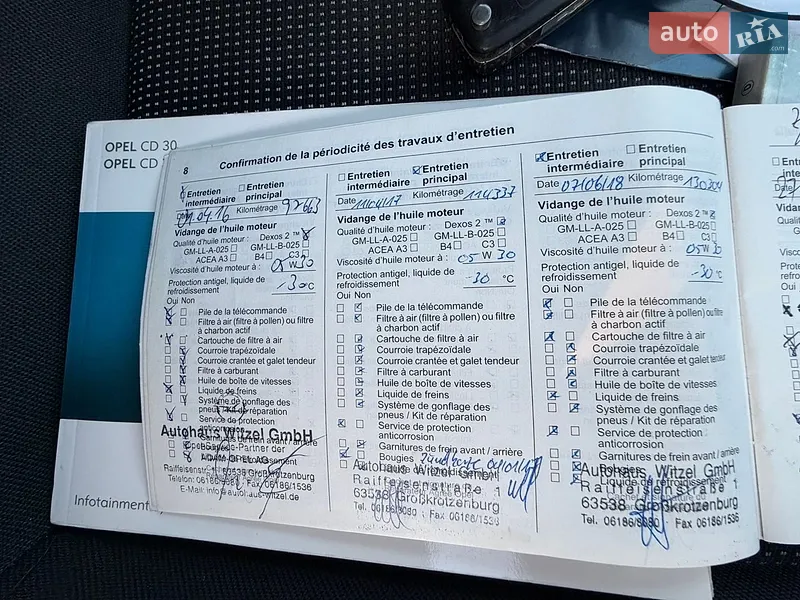 auto RIA.com
OPEL CD 30
OPEL CD
Infotainment
8 Confirmation de la périodicité des travaux d'entretien
Entretien intermédiaire Entretien principal
Date 01.04.16 Kilométrage 92663
Vidange de l'huile moteur
Qualité d'huile moteur : Dexos 2 ™
GM-LL-A-025 GM-LL-B-025
ACEA A3 B4 C3
Viscosité d'huile moteur : 05 W 30
Protection antigel, liquide de
refroidissement -30 °C
Oui Non
Pile de la télécommande
Filtre à air (filtre à pollen) ou filtre
à charbon actif
Cartouche de filtre à air
Courroie trapézoïdale
Courroie crantée et galet tendeur
Filtre à carburant
Huile de boîte de vitesses
Liquide de freins
Système de gonflage des
pneus / Kit de réparation
Service de protection
anticorrosion
Garnitures de frein avant / arrière
Autohaus Witzel GmbH
Opel Service-Partner der
ADAM OPEL AG
Raiffeisenstr. 63538 Großkrotzenburg
Telefon: 06186/ Fax 06186/1536
E-Mail: info@autohaus-witzel.de
Entretien intermédiaire Entretien principal
Date 11.04.17 Kilométrage 114337
Vidange de l'huile moteur
Qualité d'huile moteur : Dexos 2 ™
GM-LL-A-025 GM-LL-B-025
ACEA A3 B4 C3
Viscosité d'huile moteur : 05 W 30
Protection antigel, liquide de
refroidissement -30 °C
Oui Non
Pile de la télécommande
Filtre à air (filtre à pollen) ou filtre
à charbon actif
Cartouche de filtre à air
Courroie trapézoïdale
Courroie crantée et galet tendeur
Filtre à carburant
Huile de boîte de vitesses
Liquide de freins
Système de gonflage des
pneus / Kit de réparation
Service de protection
anticorrosion
Garnitures de frein avant / arrière
Bougies
Autohaus Witzel GmbH
Raiffeisenstraße 1
63538 Großkrotzenburg
Tel. 06186/8080 Fax 06186/1536
Entretien intermédiaire Entretien principal
Date 07/06/18 Kilométrage 130304
Vidange de l'huile moteur
Qualité d'huile moteur : Dexos 2 ™
GM-LL-A-025 GM-LL-B-025
ACEA A3 B4 C3
Viscosité d'huile moteur à : 05 W 30
Protection antigel, liquide de
refroidissement -30 °C
Oui Non
Pile de la télécommande
Filtre à air (filtre à pollen) ou filtre
à charbon actif
Cartouche de filtre à air
Courroie trapézoïdale
Courroie crantée et galet tendeur
Filtre à carburant
Huile de boîte de vitesses
Liquide de freins
Système de gonflage des
pneus / Kit de réparation
Service de protection
anticorrosion
Garnitures de frein avant / arrière
Bougies
Autohaus Witzel GmbH
Raiffeisenstraße 1
63538 Großkrotzenburg
Tel. 06186/8080 Fax 06186/1536